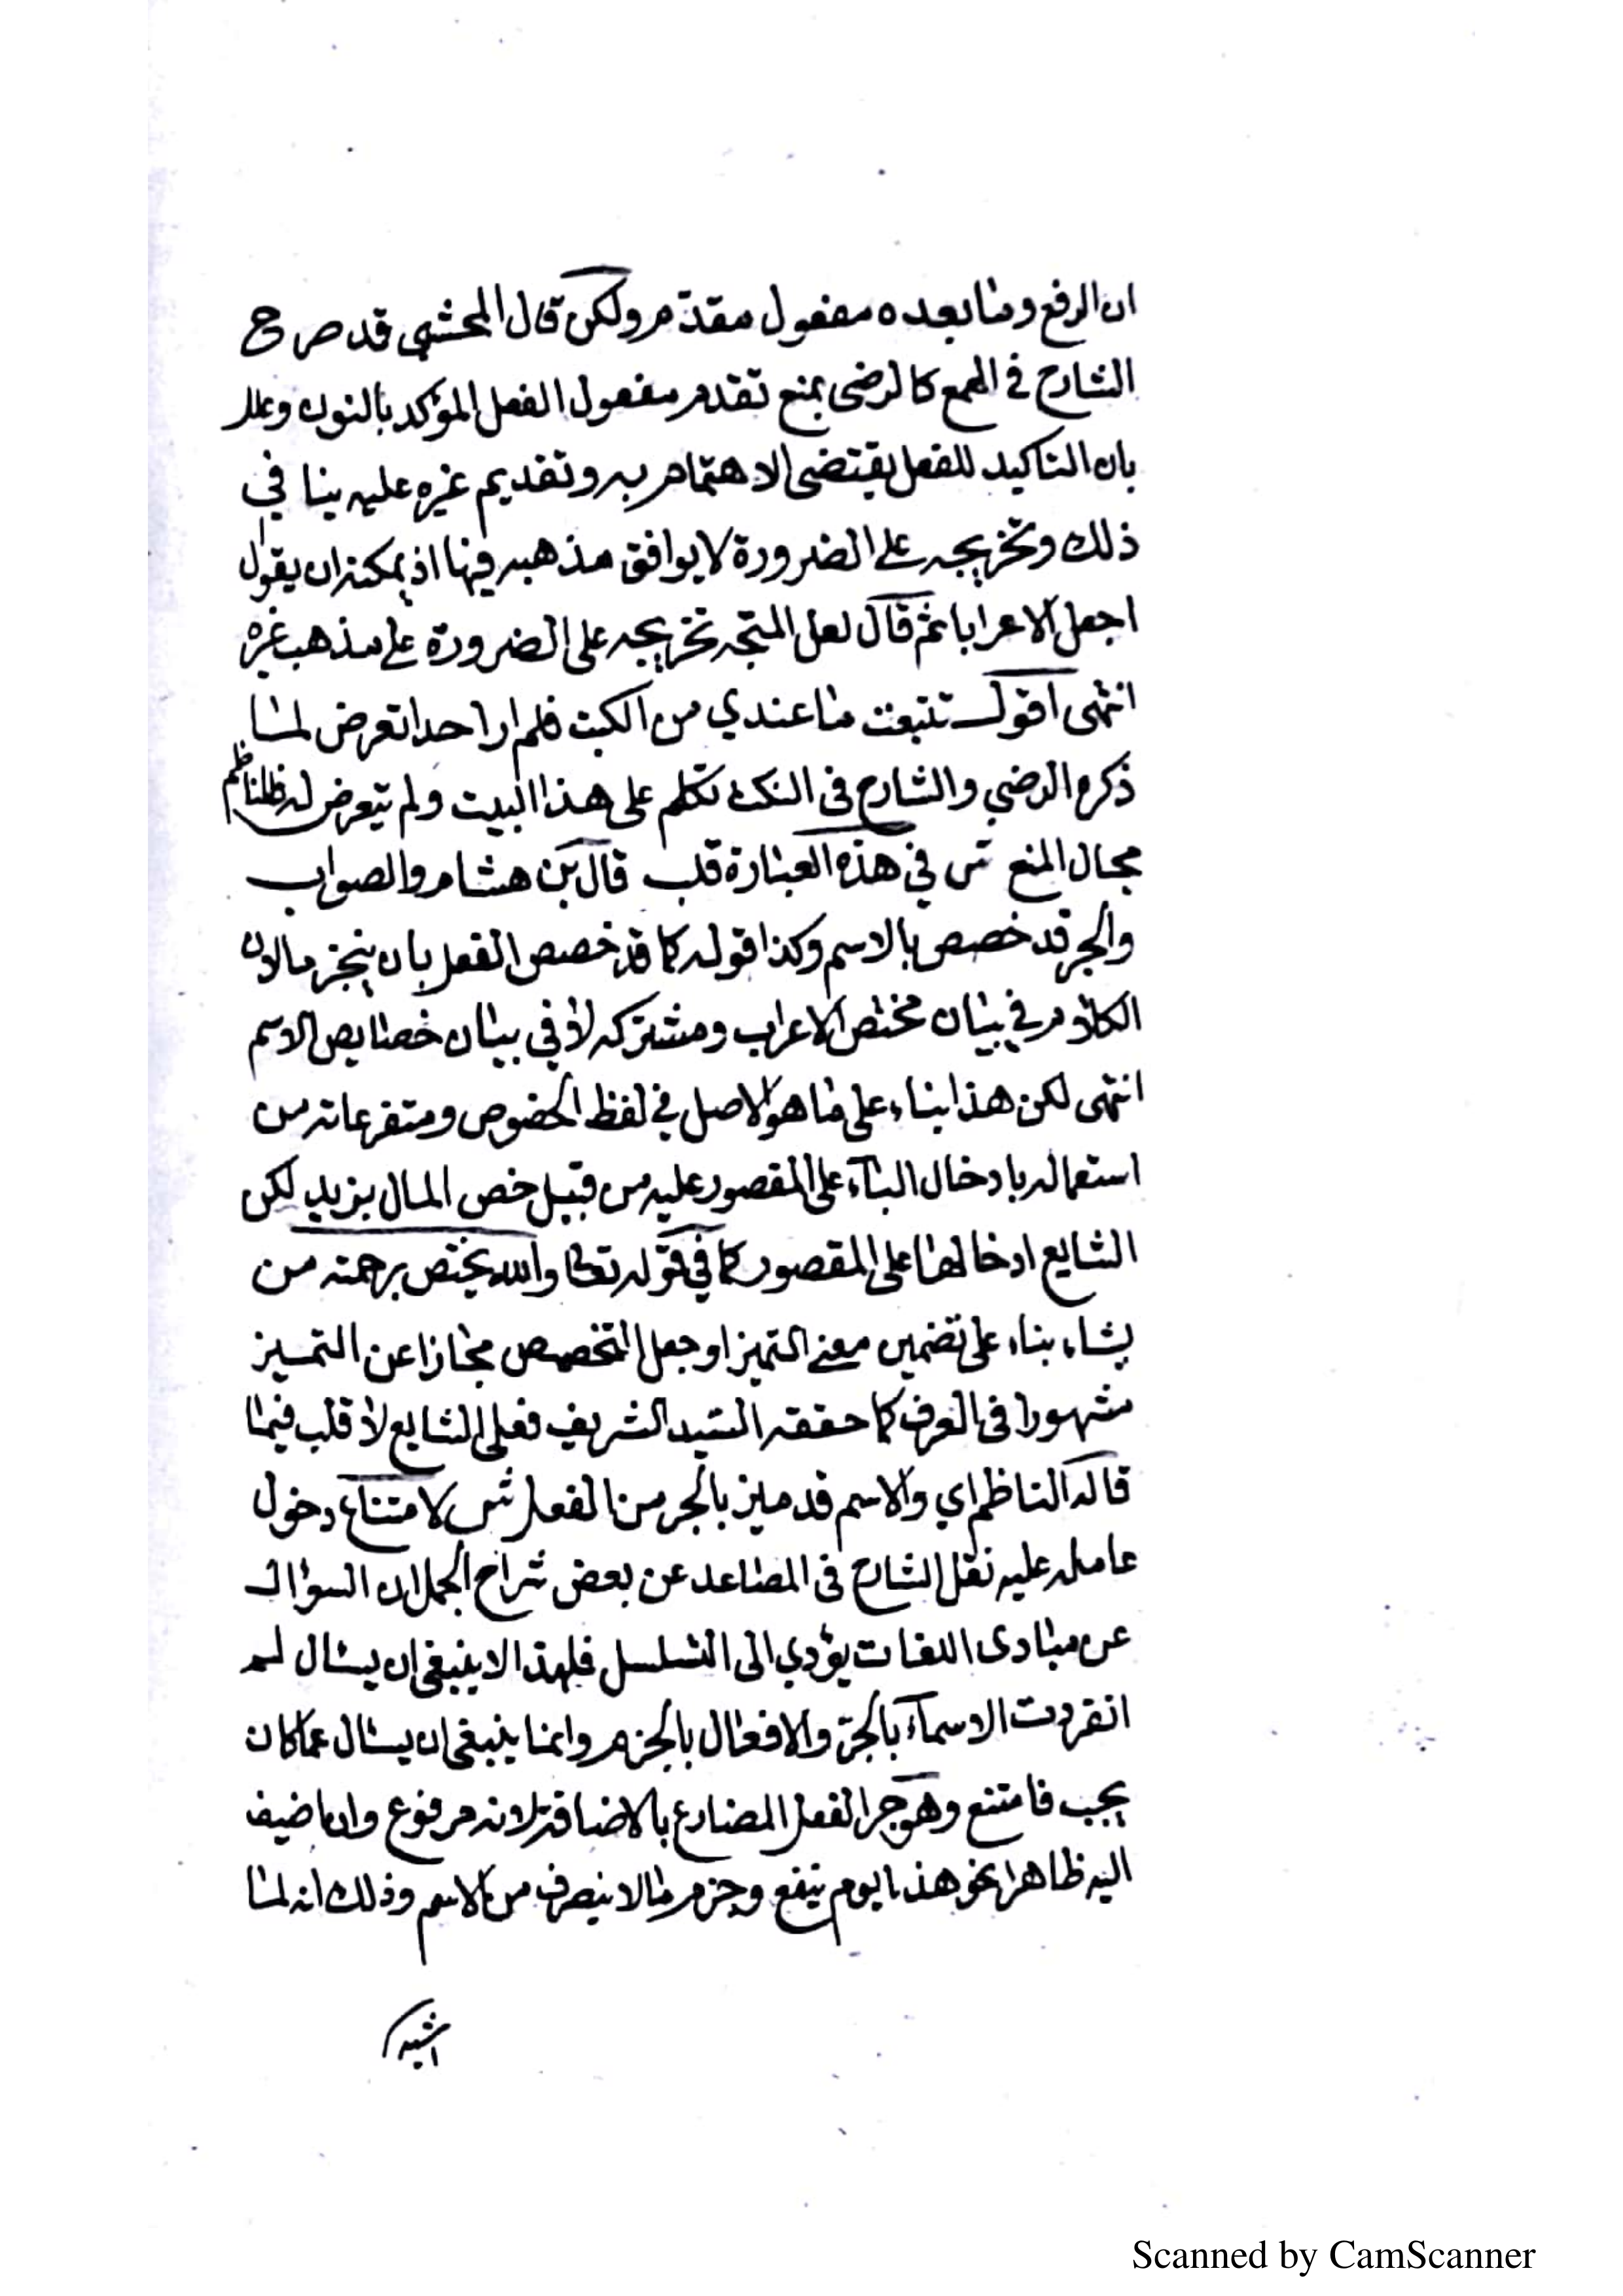 ان الرفع وما بعده مفعول مقدم ولكن قال المحشي قد صرح
الشارح في الهمع كالرضى بمنع تقدم مفعول الفعل المؤكد بالنون وعلل
بان التاكيد للفعل يقتضى الاهتمام به وتقديم غيره عليه ينافي
ذلك وتخريجه على الضرورة لا يوافق مذهبه فيها اذ يمكنه ان يقول
اجعل لاعرابا ثم قال لعل المتجه تخريجه على الضرورة على مذهب غيره
انتهى اقول تتبعت ما عندي من الكتب فلم ار احدا تعرض لما
ذكره الرضي والشارح في النكت تكلم على هذا البيت ولم يتعرض له فللناظم
مجال المنع ش في هذه العبارة قلب قال بن هشام والصواب
والجر قد خصص بالاسم وكذا قوله كما قد خصص الفعل بان ينجزما لان
الكلام في بيان مختص الاعراب ومشتركه لا في بيان خصايص الاسم
انتهى لكن هذا بناء على ما هو الاصل في لفظ الخصوص ومتفرعاته من
استعماله بادخال الباء على المقصور عليه من قبيل خص المال بزيد لكن
الشايع ادخالها على المقصور كما في قوله تعالى والله يختص برحمته من
يشاء بناء على تضمين معنى التميز او جعل التخصيص مجازا عن التمييز
مشهورا في العرف كما حققه السيد الشريف فعلى الشايع لا قلب فيما
قاله الناظم اي والاسم قد ميز بالجر من الفعل ش لامتناع دخول
عامله عليه نقل الشارح في المصاعد عن بعض شراح الجمل ان السؤال
عن مبادى اللغات يؤدي الى التسلسل فلهذا لا ينبغي ان يسال لم
انفردت الاسماء بالجر والافعال بالجزم وانما ينبغي ان يسال عما كان
يجب فامتنع وهو جر الفعل المضارع بالاضافة لانه مرفوع وان اضيف
اليه ظاهرا نحو هذا يوم ينفع وجزم ما لا ينصرف من الاسم وذلك انه لما
اشبه
Scanned by CamScanner